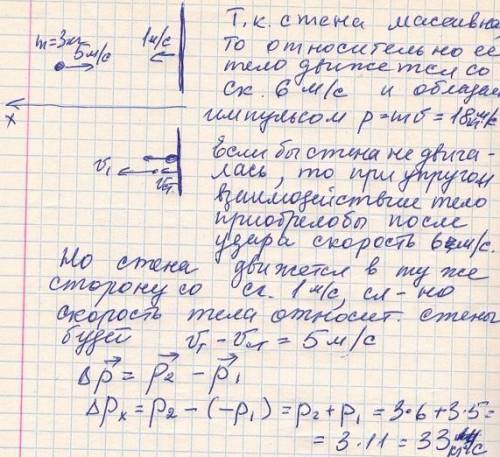 m=3кг
5 м/с
1 м/с
x
v₁
vст.
Т.к. стена массивна,
то относительно её
тело движется со
ск. 6 м/с и обладае
импульсом p=mv=18
Если бы стена не двига-
лась, то при упругом
взаимодействие тело
приобрело бы после
удара скорость 6 м/с.
Но стена движется в ту же
сторону со ск. 1 м/с, сл-но
скорость тела относит. стены
будет vт - vст = 5 м/с
Δp⃗ = p⃗₂ - p⃗₁
Δpₓ = p₂ - (-p₁) = p₂ + p₁ = 3·6 + 3·5 =
= 3·11 = 33